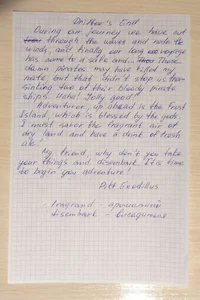 Drifter's End
During our journey we have cut
through the waves and
winds, and finally our long voyage
has come to a safe end. Those
damn pirates may have killed my
mate but that didn't stop us from
sinking two of their bloody pirate
ships. Haha! Jolly good!
Adventurer, up ahead is the Frost
Island, which is blessed by the gods.
I must savor the fragrant air of
dry land and have a drink of fresh
ale.
My friend, why don't you take
your things and disembark. It is time
to begin you adventure!
Pott
fragrant - ароматный
disembark - высадиться